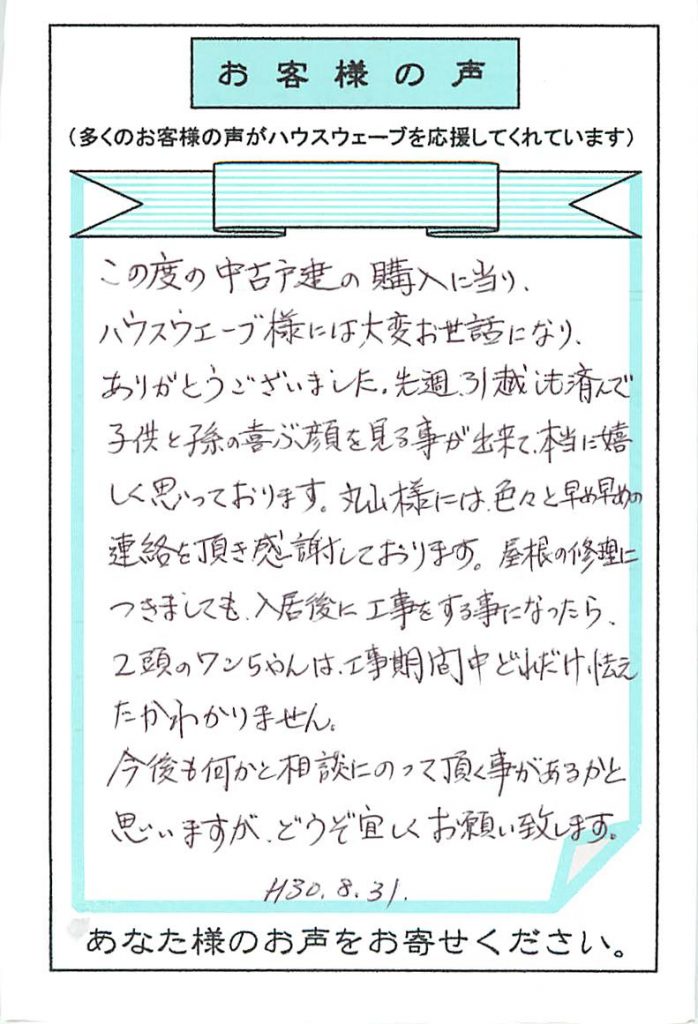 お客様の声
（多くのお客様の声がハウスウェーブを応援してくれています）
この度の中古戸建の購入に当り、
ハウスウエーブ様には大変お世話になり、
ありがとうございました。先週、引越しも済んで
子供と孫の喜ぶ顔を見る事が出来て、本当に嬉
しく思っております。丸山様には、色々と早め早めの
連絡を頂き感謝しております。屋根の修理に
つきましても、入居後に工事をする事になったら、
2頭のワンちゃんは、工事期間中どれだけ怯え
たかわかりません。
今後も何かと相談にのって頂く事があるかと
思いますが、どうぞ宜しくお願い致します。
H30.8.31.
あなた様のお声をお寄せください。